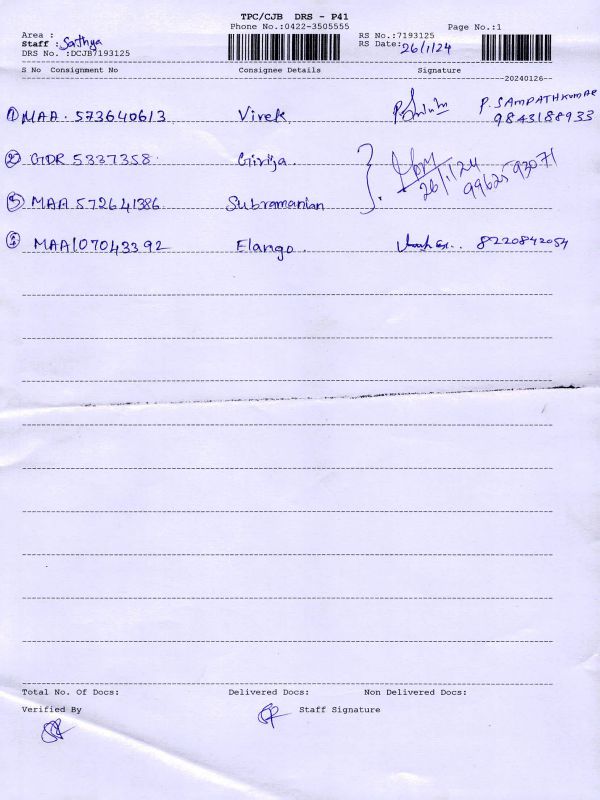 TPC/CJB DRS - P41
Phone No.:0422-3505555
Page No.:1
Area :
Staff : Sathya
DRS No. :DCJB7193125
RS No.:7193125
RS Date: 26/1/24
S No Consignment No Consignee Details Signature
20240126
1 MAA. 573640613 Vivek P. SAMPATHKUMAR
9843188933
2 GDR 5337358 Girija.
26/1/24 99625 93071
3 MAA 572641386 Subramanian
MAA107043392 Elango. 8220842054
Total No. Of Docs: Delivered Docs: Non Delivered Docs:
Verified By Staff Signature